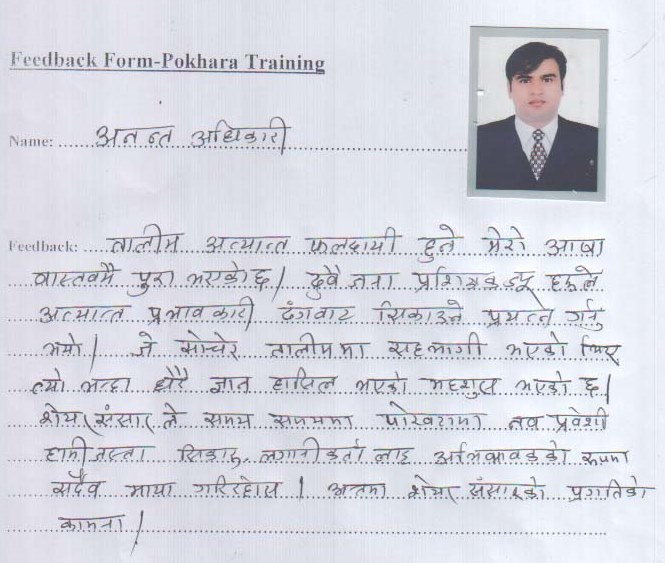 Feedback Form-Pokhara Training
Name: अनन्त अधिकारी
Feedback: तालीम अत्यान्त फलदायी हुने मेरो आषा
वास्तवमै पुरा भएको छ। दुवै जना प्रशिक्षक हरुले
अत्यान्त प्रभावकारी ढंगवाट सिकाउने प्रयत्न गर्नु
भयो। जे सोचेर तालीममा सहभागी भएको थिए
त्यो भन्दा धेरै ज्ञान हासिल भएको महशुस भएको छ।
शेयर संसार ले समय समयमा पोखरामा नव प्रवेशी
हामी जस्ता सिकारु लगानीकर्ता लाइ अभिभावकको रूपमा
सदैव माया गरिरहोस। अन्तमा शेयर संसारको प्रगतिको
कामना।